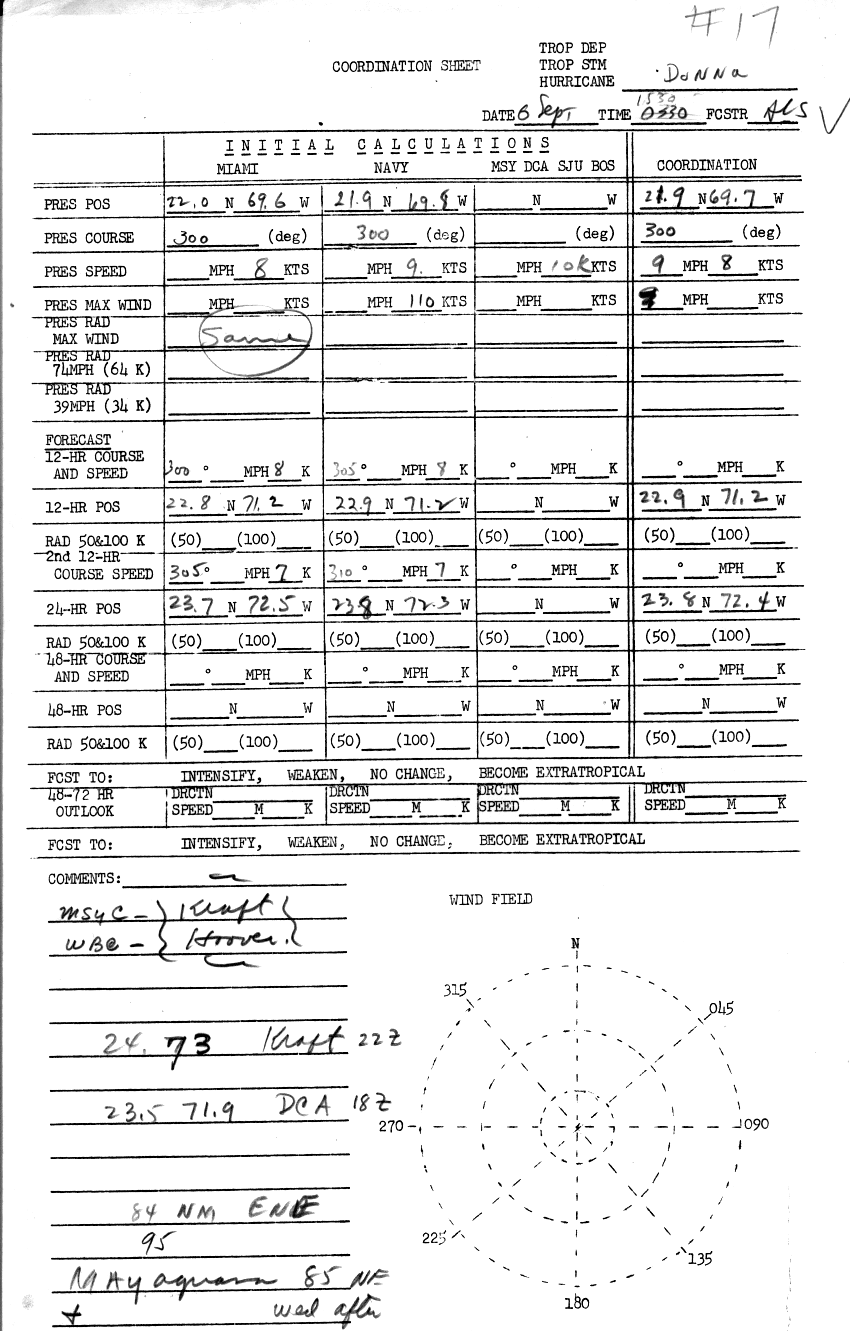 #17
TROP DEP
COORDINATION SHEET TROP STM
HURRICANE Donna
DATE 6 Sept TIME 1530 0330 FCSTR ALS
INITIAL CALCULATIONS
MIAMI NAVY MSY DCA SJU BOS COORDINATION
PRES POS 22.0 N 69.6 W 21.9 N 69.8 W N W 21.9 N 69.7 W
PRES COURSE 300 (deg) 300 (deg) (deg) 300 (deg)
PRES SPEED MPH 8 KTS MPH 9. KTS MPH 10K KTS 9 MPH 8 KTS
PRES MAX WIND MPH KTS MPH 110 KTS MPH KTS MPH KTS
PRES RAD
MAX WIND Same
PRES RAD
74MPH (64 K)
PRES RAD
39MPH (34 K)
FORECAST
12-HR COURSE
AND SPEED 300 ° MPH 8 K 305 ° MPH 8 K ° MPH K ° MPH K
12-HR POS 22.8 N 71.2 W 22.9 N 71.2 W N W 22.9 N 71.2 W
RAD 50&100 K (50) (100) (50) (100) (50) (100) (50) (100)
2nd 12-HR
COURSE SPEED 305° MPH 7 K 310 ° MPH 7 K ° MPH K ° MPH K
24-HR POS 23.7 N 72.5 W 23.8 N 72.3 W N W 23.8 N 72.4 W
RAD 50&100 K (50) (100) (50) (100) (50) (100) (50) (100)
48-HR COURSE
AND SPEED ° MPH K ° MPH K ° MPH K ° MPH K
48-HR POS N W N W N W N W
RAD 50&100 K (50) (100) (50) (100) (50) (100) (50) (100)
FCST TO: INTENSIFY, WEAKEN, NO CHANGE, BECOME EXTRATROPICAL
48-72 HR DRCTN DRCTN DRCTN DRCTN
OUTLOOK SPEED M K SPEED M K SPEED M K SPEED M K
FCST TO: INTENSIFY, WEAKEN, NO CHANGE, BECOME EXTRATROPICAL
COMMENTS:
MSYC - } Kraft {
WBC - } Hoover. {
24. 73 Kraft 22Z
23.5 71.9 DCA 18Z
84 NM ENE
95
MAyaguana 85 NE
+ wed after
WIND FIELD
N
315 045
270 090
225 135
180